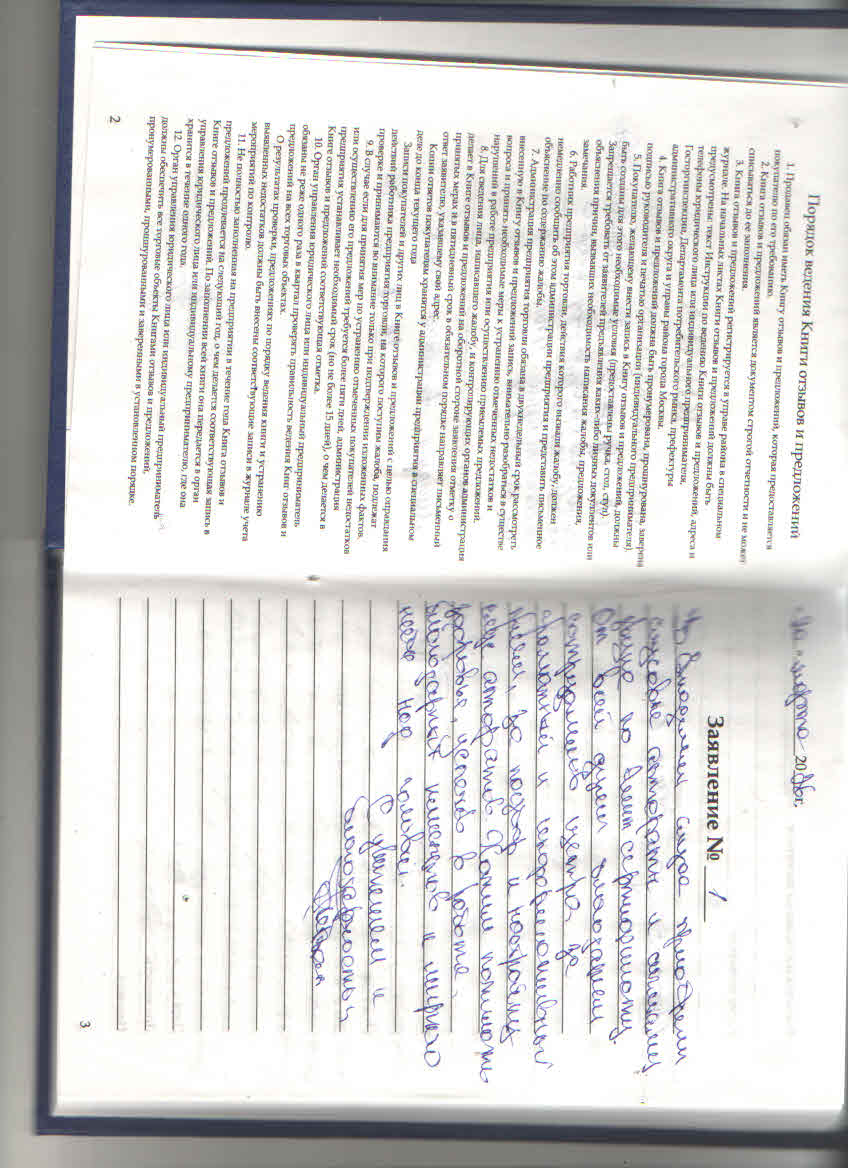 Порядок ведения Книги отзывов и предложений
1. Продавец обязан иметь Книгу отзывов и предложений, которая предоставляется
покупателю по его требованию.
2. Книга отзывов и предложений является документом строгой отчетности и не может
списываться до ее заполнения.
3. Книга отзывов и предложений регистрируется в управе района в специальном
журнале. На начальных листах Книги отзывов и предложений должны быть
предусмотрены: текст Инструкции по ведению Книги отзывов и предложений, адреса и
телефоны юридического лица или индивидуального предпринимателя,
Госторгинспекции, Департамента потребительского рынка, префектуры
административного округа и управы района города Москвы.
4. Книга отзывов и предложений должна быть пронумерована, прошнурована, заверена
подписью руководителя и печатью организации (индивидуального предпринимателя).
5. Покупателю, желающему внести запись в Книгу отзывов и предложений, должны
быть созданы для этого необходимые условия (предоставлены ручка, стол, стул).
Запрещается требовать от заявителей предъявления каких-либо личных документов или
объяснения причин, вызвавших необходимость написания жалобы, предложения,
замечания.
6. Работник предприятия торговли, действия которого вызвали жалобу, должен
немедленно сообщить об этом администрации предприятия и представить письменное
объяснение по содержанию жалобы.
7. Администрация предприятия торговли обязана в двухнедельный срок рассмотреть
внесенную в Книгу отзывов и предложений запись, внимательно разобраться в существе
вопроса и принять необходимые меры к устранению отмеченных недостатков и
нарушений в работе предприятия или осуществлению приемлемых предложений.
8. Для сведения лица, написавшего жалобу, и контролирующих органов администрация
делает в Книге отзывов и предложений на оборотной стороне заявления отметку о
принятых мерах и в пятидневный срок в обязательном порядке направляет письменный
ответ заявителю, указавшему свой адрес.
Копии ответов покупателям хранятся у администрации предприятия в специальном
деле до конца текущего года
Записи покупателей и других лиц в Книге отзывов и предложений с целью оправдания
действий работника предприятия торговли, на которого поступили жалоба, подлежат
проверке и принимаются во внимание только при подтверждении изложенных фактов.
9. В случае если для принятия мер по устранению отмеченных покупателей недостатков
или осуществлению его предложений требуется более пяти дней, администрация
предприятия устанавливает необходимый срок (но не более 15 дней), о чем делается в
Книге отзывов и предложений соответствующая отметка.
10. Орган управления юридического лица или индивидуальный предприниматель
обязаны не реже одного раза в квартал проверять правильность ведения Книг отзывов и
предложений на всех торговых объектах.
О результатах проверки, предложениях по порядку ведения книги и устранению
выявленных недостатков должны быть внесены соответствующие записи в журнале учета
мероприятий по контролю.
11. Не полностью заполненная на предприятии в течение года Книга отзывов и
предложений продлевается на следующий год, о чем делается соответствующая запись в
Книге отзывов и предложений. По заполнении всей книги она передается в орган
управления юридического лица или индивидуальному предпринимателю, где она
хранится в течение одного года.
12. Орган управления юридического лица или индивидуальный предприниматель
должны обеспечить все торговые объекты Книгами отзывов и предложений,
пронумерованными, прошурованными и заверенными в установленном порядке.
2
марта 2006г.
Заявление № 1
слуха приобрели
слуховые аппараты и
От всей души благодарим
сотрудников центра за
за подбор и настройку
аппаратов. Желаем
здоровья, успехов в работе,
благодарных клиентов и мирного
неба над головой.
С уважением и
благодарностью
3